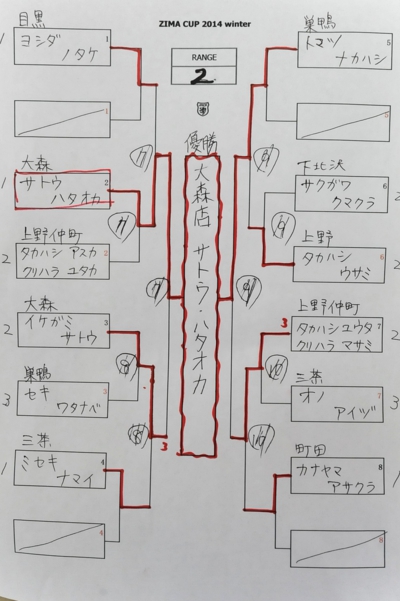 ZIMA CUP 2014 winter
RANGE
2
優勝
大森店 サトウ・ハタオカ
目黒
1
ヨシダ
ノタケ
1
1
大森
1
サトウ
ハタオカ
2
上野仲町
2
タカハシ アスカ
クリハラ ユタカ
2
大森
2
イケガミ
サトウ
3
巣鴨
3
セキ
ワタナベ
3
三茶
1
ミセキ
ナマイ
4
4
3
巣鴨
トマツ
ナカハシ
5
5
下北沢
サクガワ
クマクラ
6
2
上野
タカハシ
ウサミ
6
2
上野仲町
3
タカハシユウタ
クリハラ マサミ
7
2
三茶
オノ
アイヅ
7
3
町田
カナヤマ
アサクラ
8
1
8